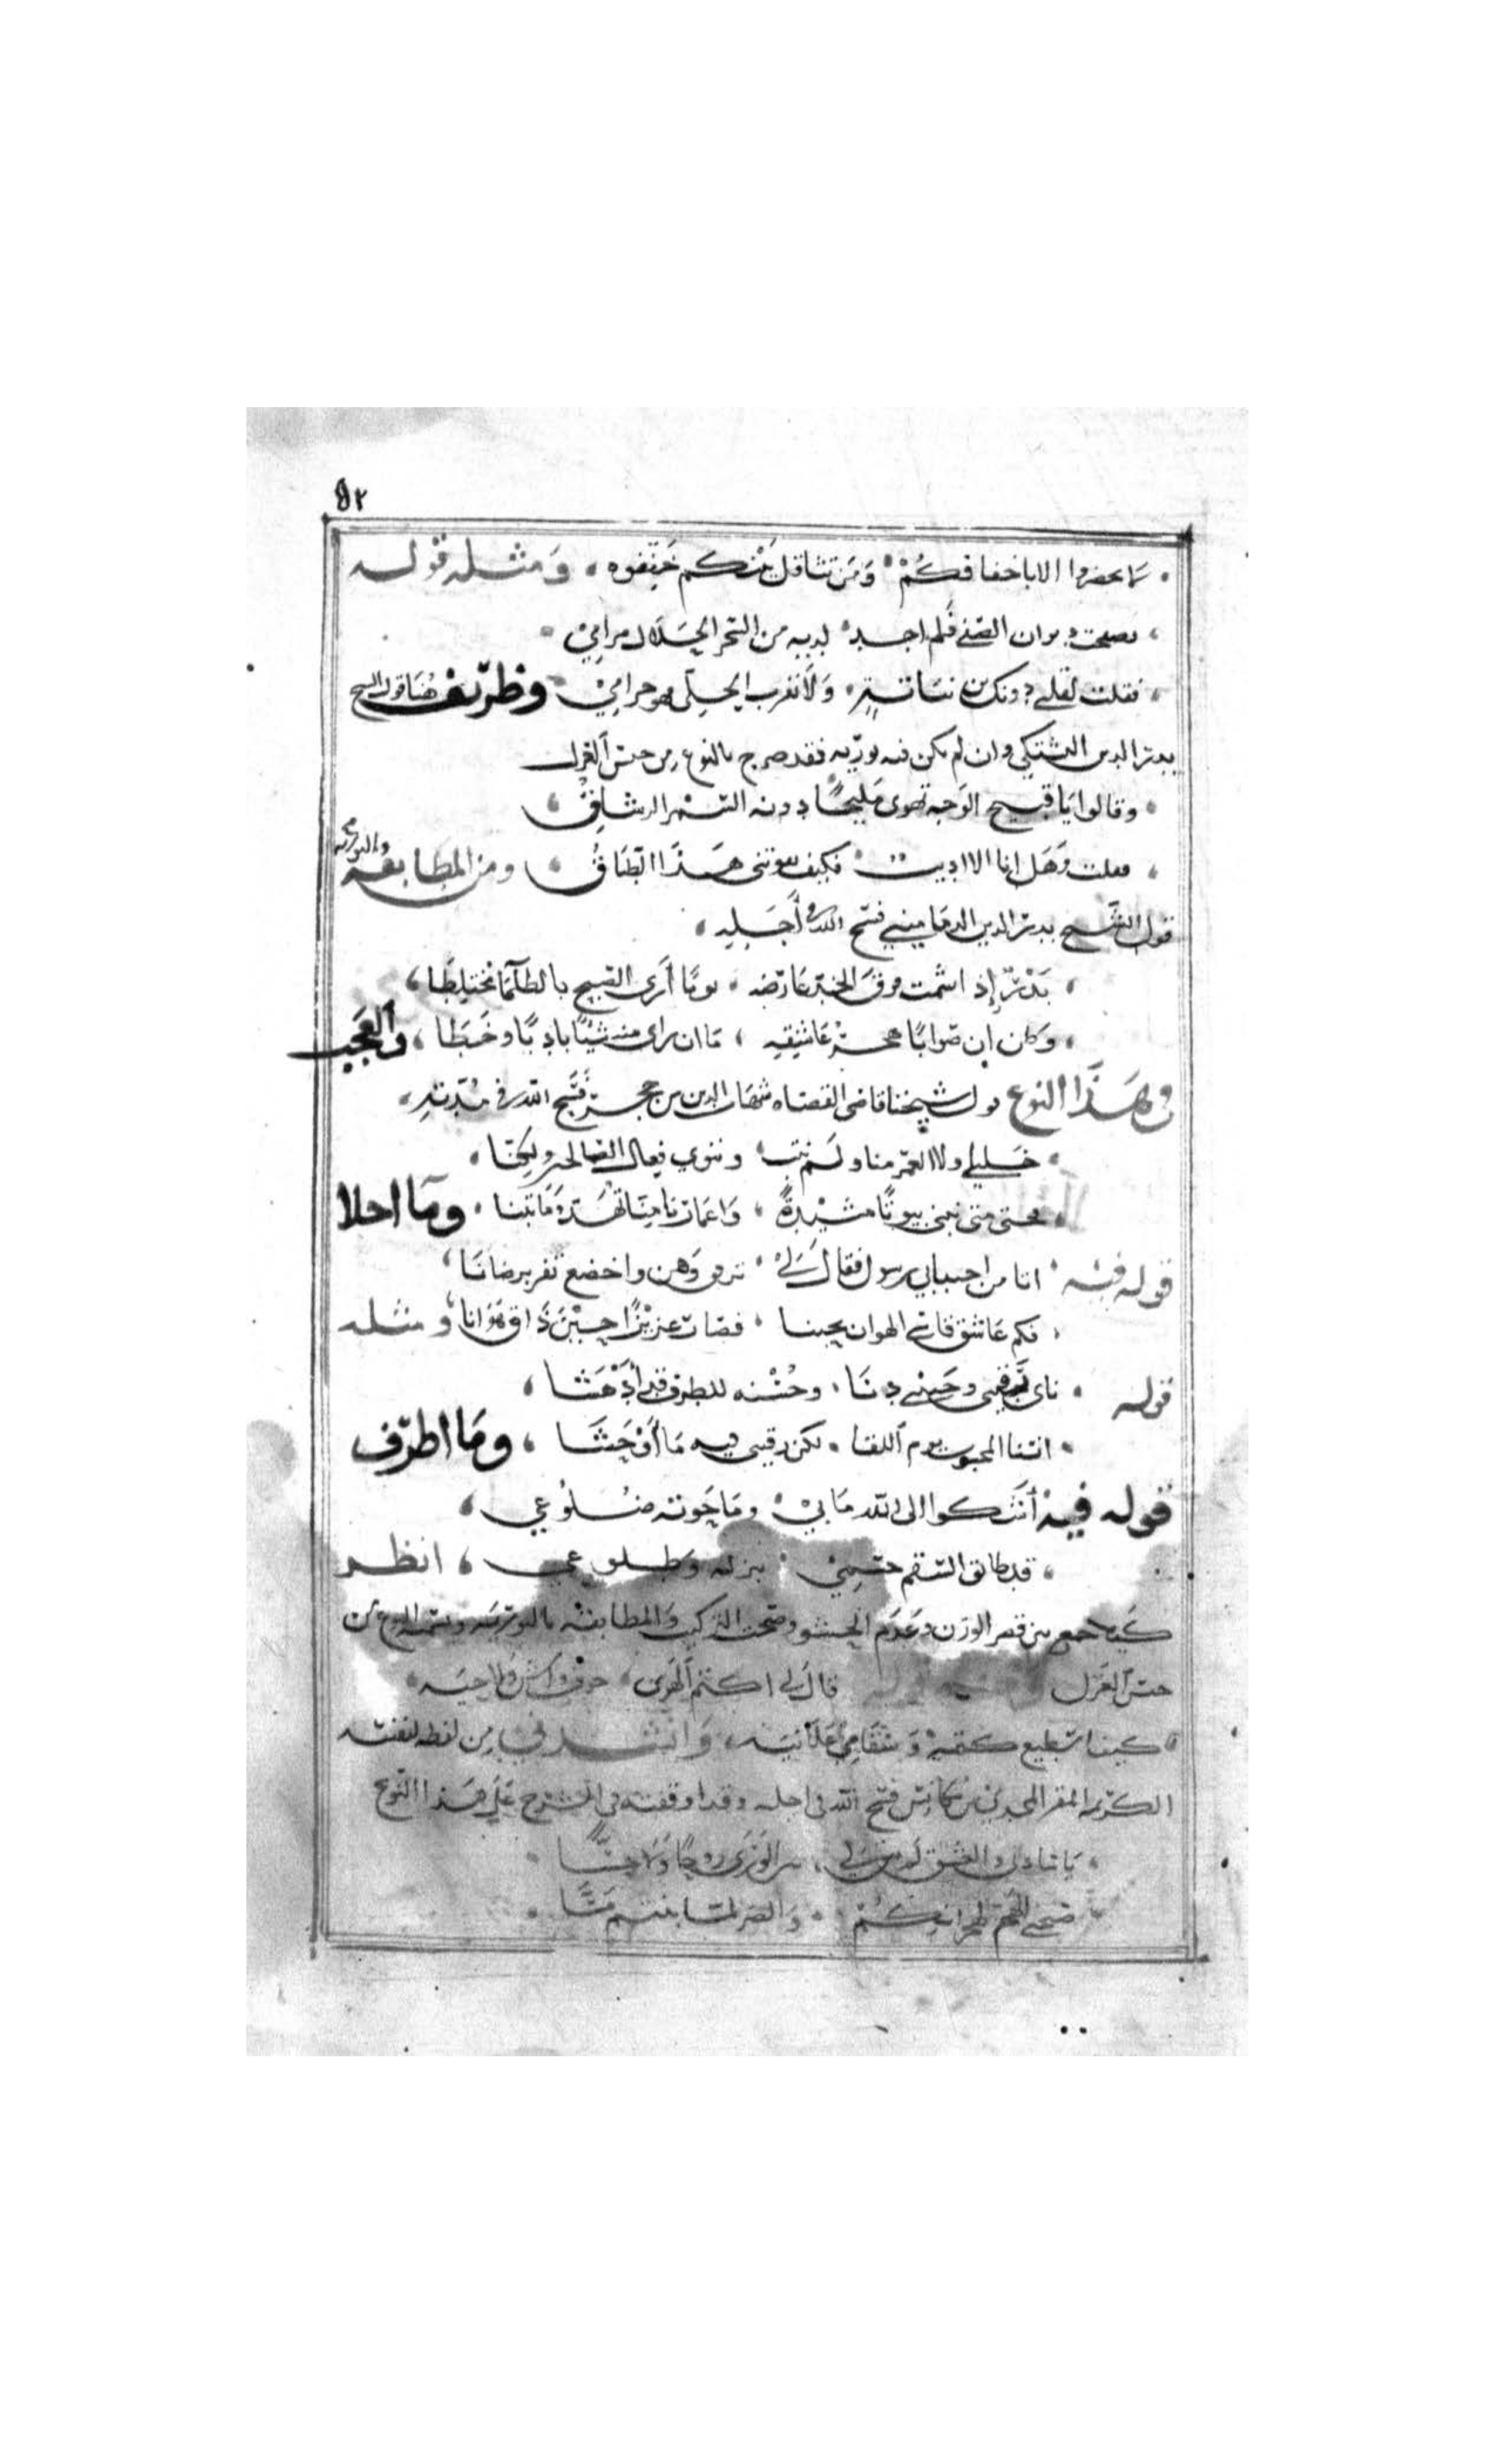 ٥٢
لا تحضروا الا باخفافكم ومن تثاقل عنكم خففوه ومثله قوله
تصفحت ديوان الصفي فلم اجد لديه من السحر الحلال مرامي
فقلت لقلبي دونك ابن نباتة ولا تقرب الحلي فهو حرامي وظريف هنا قول الشيخ
بدر الدين البشتكي وان لم يكن فيه تورية فقد صرح بالنوع من جنس الغزل
وقالوا يا قبيح الوجه تهوى مليحا دونه السمر الرشاق
فقلت وهل انا الا اديب فكيف يفوتني هذا الطباق ومن المطابقة والتورية
قول الشيخ بدر الدين الدماميني فتح الله في أجله
بدر إذ اشمت فوق الخد عارضه يوما أرى القبيح بالظلما مختلطا
وكان ان صوابا هجر عاشقيه ما ان راى منه شيبا باديا وخطا والعجب
في هذا النوع قول شيخنا قاضي القضاه شهاب الدين بن حجر فسح الله في مدته
خليلي ولا العمر منا ولم نتب وننوي فعال الصالح ولكنا
فحتى متى نبني بيوتا مشيدة واعمارنا منا تهد وما تبنا وما احلا
قوله فيه اتا من احبابي رسول فقال لي ترفق وهن واخضع تفز برضانا
فكم عاشق قاسى الهوان بحبنا فصار عزيزا حين ذاق هوانا ومثله
قوله ناى رقيبي وحبيبي دنا وحسنه للطرف قد أدهشا
انسنا المحبوب يوم اللقا لكن رقيبي فيه ما أوحشا وما اظرف
قوله فيه أشكوا الى الله ما بي وما حوته ضلوعي
قد طابق السقم جسمي بنزلة وطلوعي انظر
كيف جمع بين قصر الوزن وعدم الحشو وصحت التركيب والمطابقة بالتورية وتسمية النوع من
جنس الغزل قوله قال لي اكتم الهوى خوف واش ولاحيه
كيف استطيع كتمه وسقامي علانيه وانشدني من لفظه لنفسه
الكريمه المقر المجدي بن مكانس فتح الله في اجله وقد اوقفته في الشرح على هذا النوع